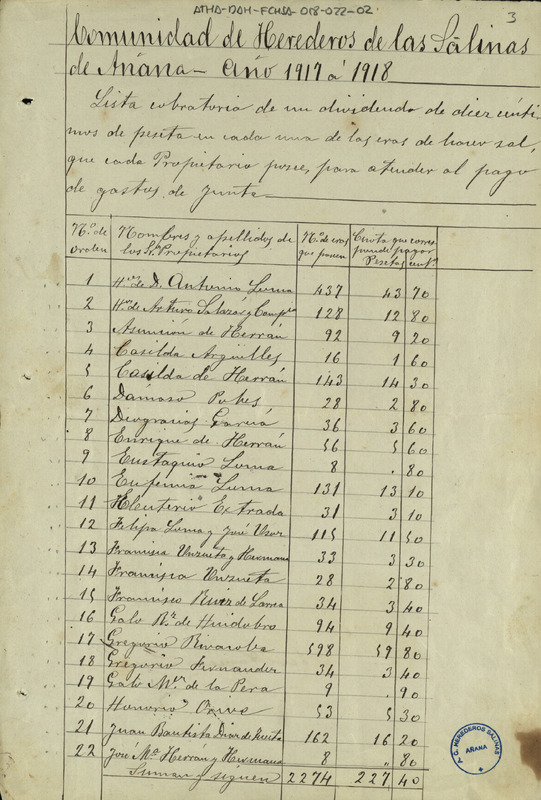 ATHA-DAH-FCHSA-018-022-02
3
Comunidad de Herederos de las Salinas
de Añana - Año 1917 á 1918
Lista cobratoria de un dividendo de diez cénti-
mos de peseta en cada una de las eras de hacer sal,
que cada Propietario posee, para atender al pago
de gastos de Junta
Nº de orden Nombres y apellidos de los Sres Propietarios Nº de eras que poseen Cuota que corresponde pagar Pesetas cents
1 Hros de D. Antonio Luma 437 43 70
2 Hros de Arturo Salazar y Compª 128 12 80
3 Asunción de Herrán 92 9 20
4 Casilda Argüelles 16 1 60
5 Casilda de Herrán 143 14 30
6 Damaso 28 2 80
7 Deogracias García 36 3 60
8 Enrique de Herrán 56 5 60
9 Eustaquio Luma 8 „ 80
10 Eufemia Luma 131 13 10
11 Eleuterio Extrada 31 3 10
12 Felipa Luma y José 115 11 50
13 Francisca Unzueta y Hermana 33 3 30
14 Francisca Unzueta 28 2 80
15 Francisco Ruiz de Larrea 34 3 40
16 Galo Rz de Huidobro 94 9 40
17 Gregorio 598 59 80
18 Gregorio Fernandez 34 3 40
19 Galo Mª de la Pera 9 „ 90
20 Honorio Orive 53 5 30
21 Juan Bautista Diaz de 162 16 20
22 José Mª Herrán y Hermana 8 „ 80
Suman y siguen 2274 227 40
C. HEREDEROS SALINAS
AÑANA